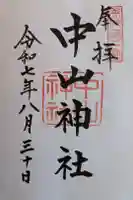 奉拝
中山神社
令和七年八月三十日